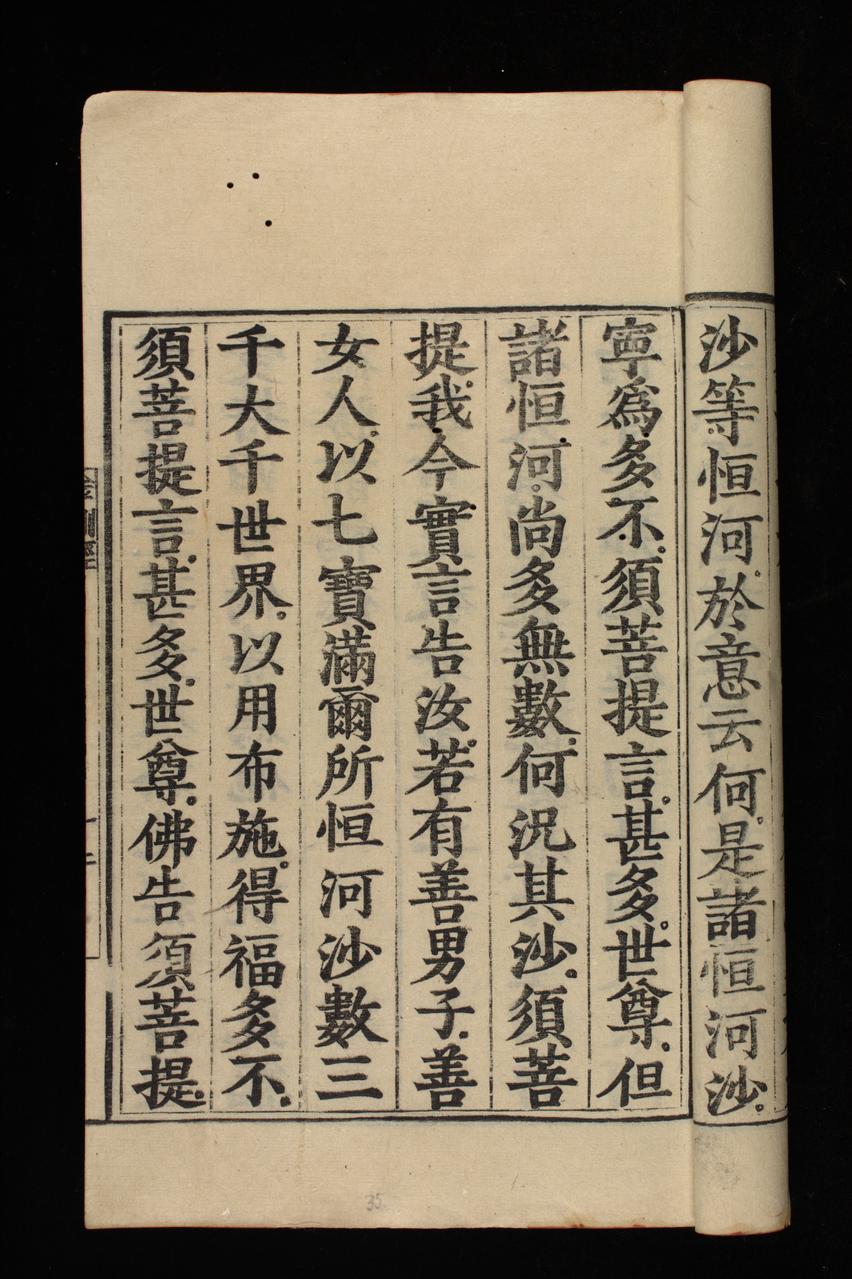 沙等恒河。於意云何。是諸恒河沙。
寧爲多不。須菩提言。甚多。世尊。但
諸恒河。尚多無數。何況其沙。須菩
提。我今實言告汝。若有善男子。善
女人。以七寶滿爾所恒河沙數三
千大千世界。以用布施。得福多不。
須菩提言。甚多。世尊。佛告須菩提。
35